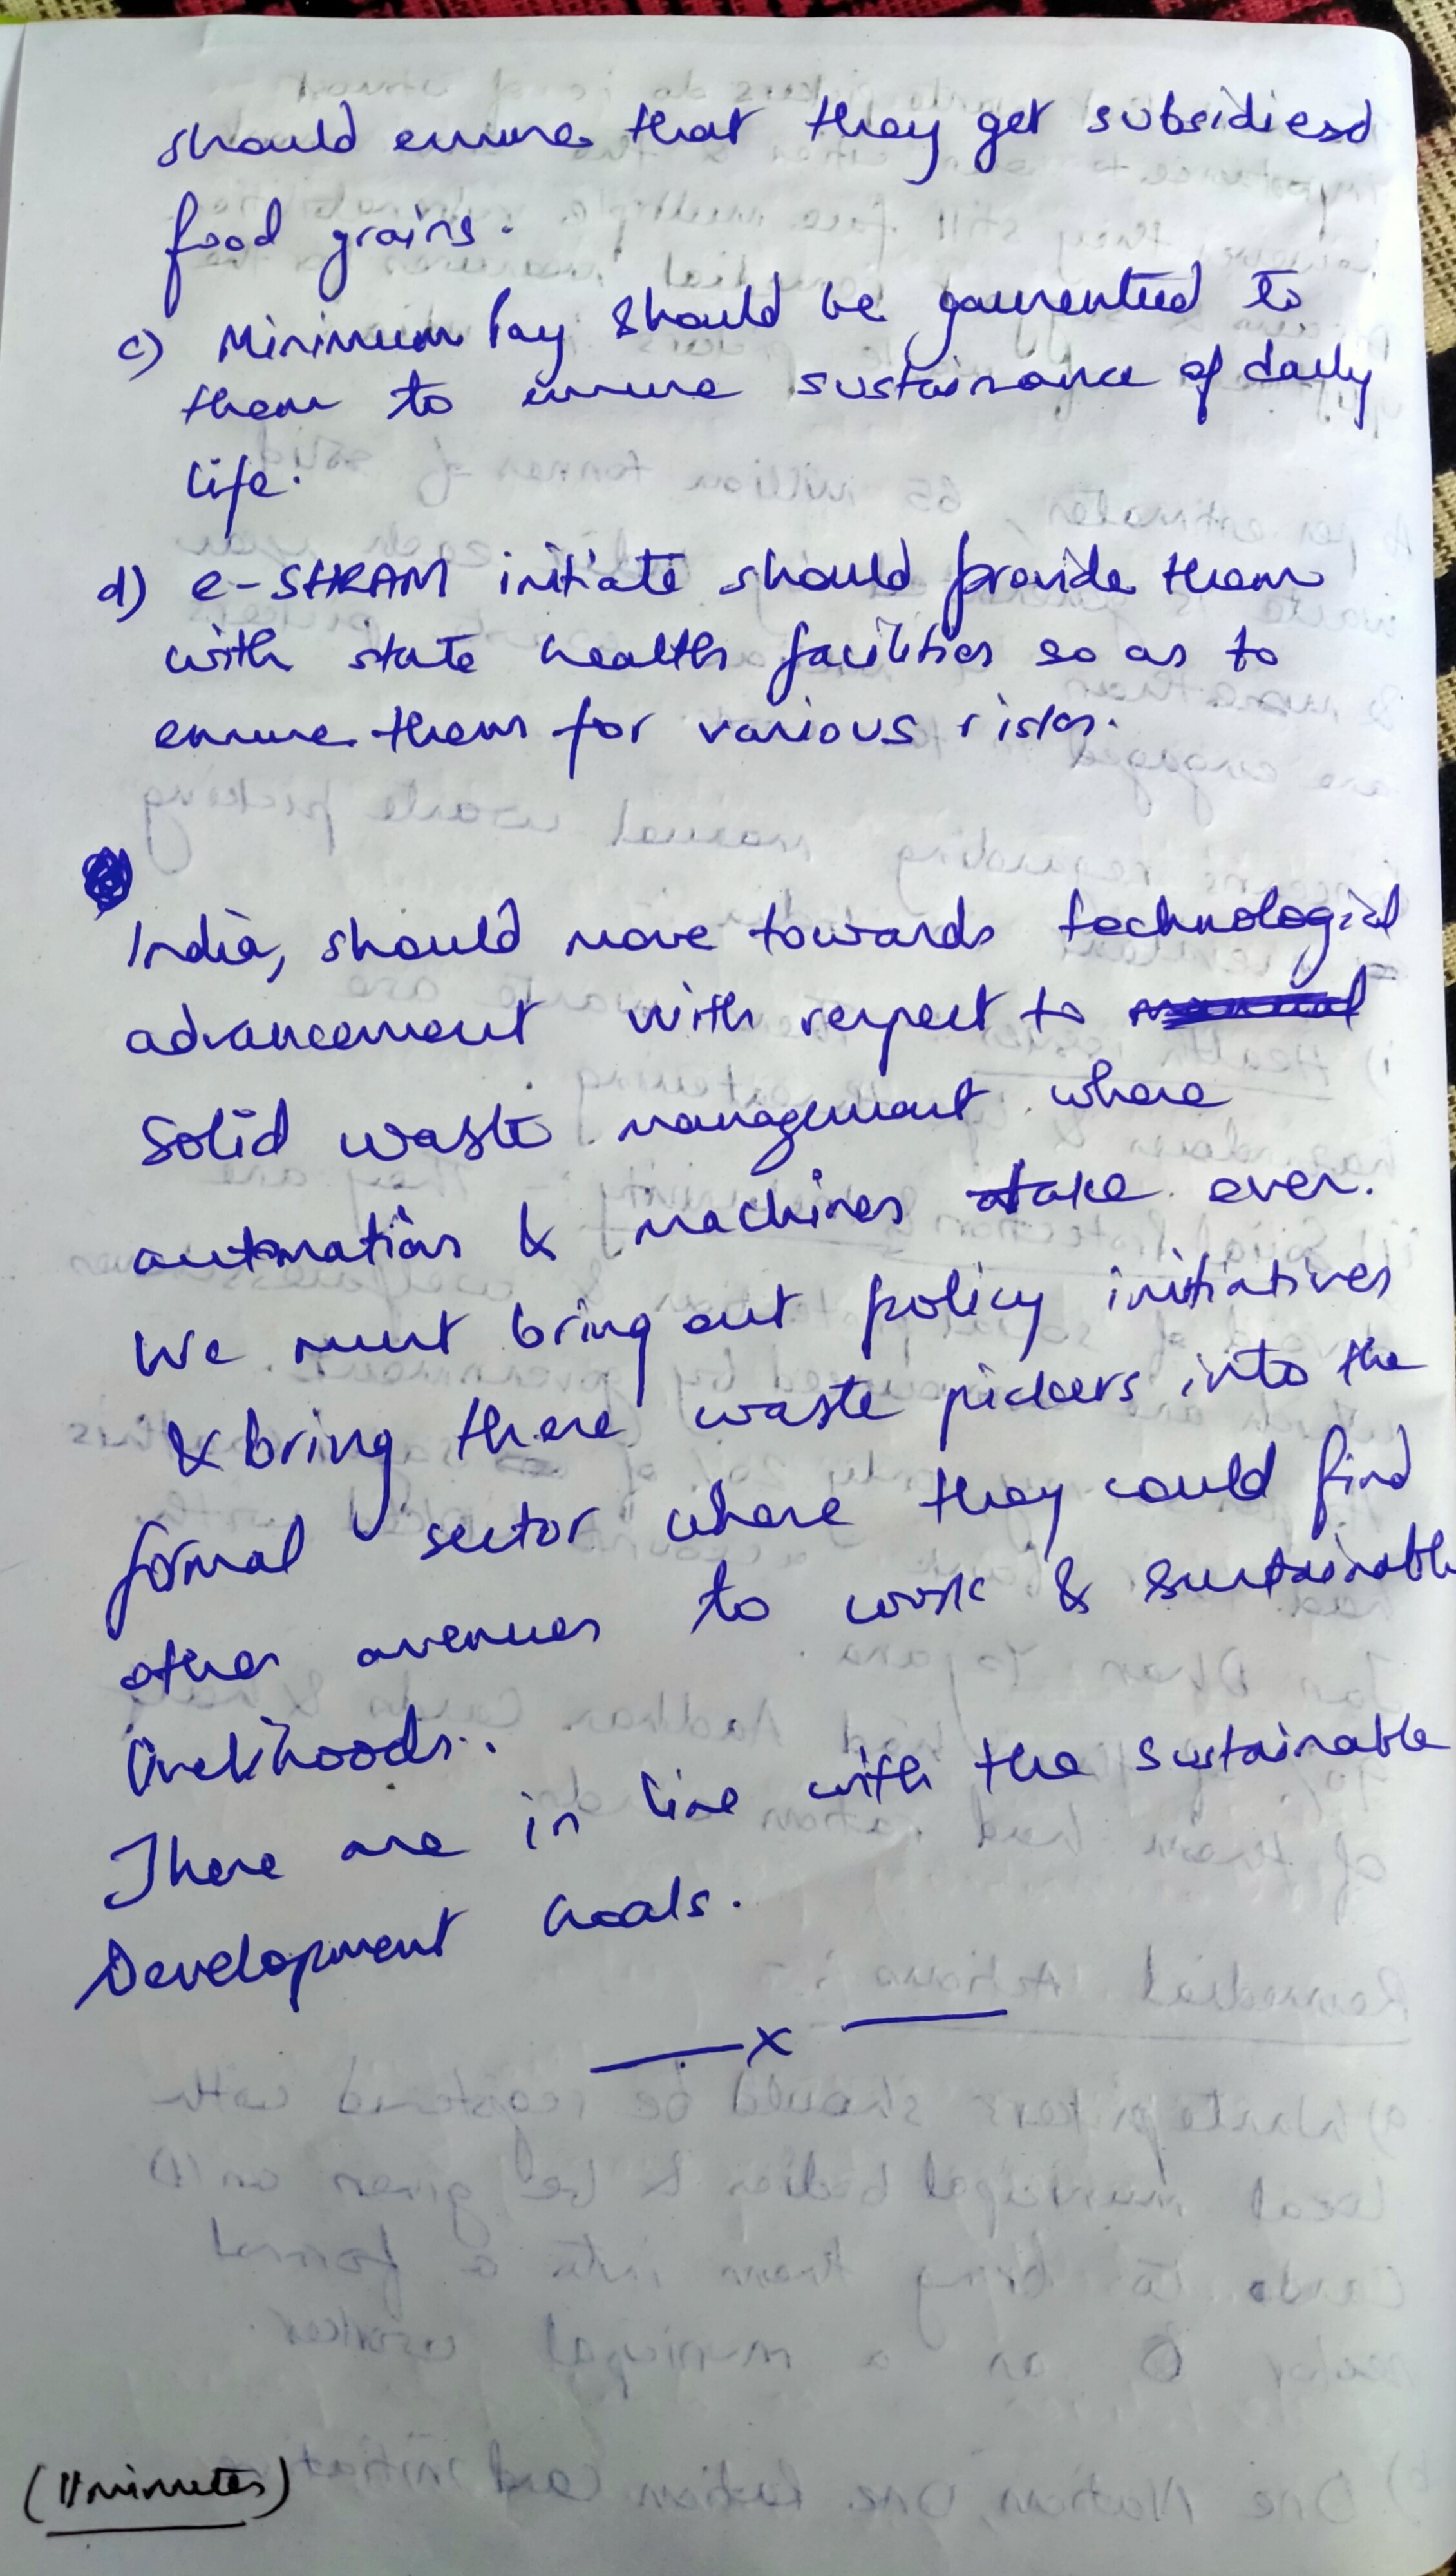 should ensure that they get subsidiesd
food grains.
c) Minimum Pay should be gaurenteed to
them to ensure sustainance of daily
life.
d) e-SHRAM initiate should provide them
with state health facilities so as to
ensure them for various risks.
India, should move towards technological
advancement with respect to
Solid waste management where
automation & machines take over.
We must bring out policy initiatives
& bring these waste pickers into the
formal sector where they could find
other avenues to work & sustainable
livelihoods.
These are in line with the sustainable
Development Goals.
—x—
(11 minutes)